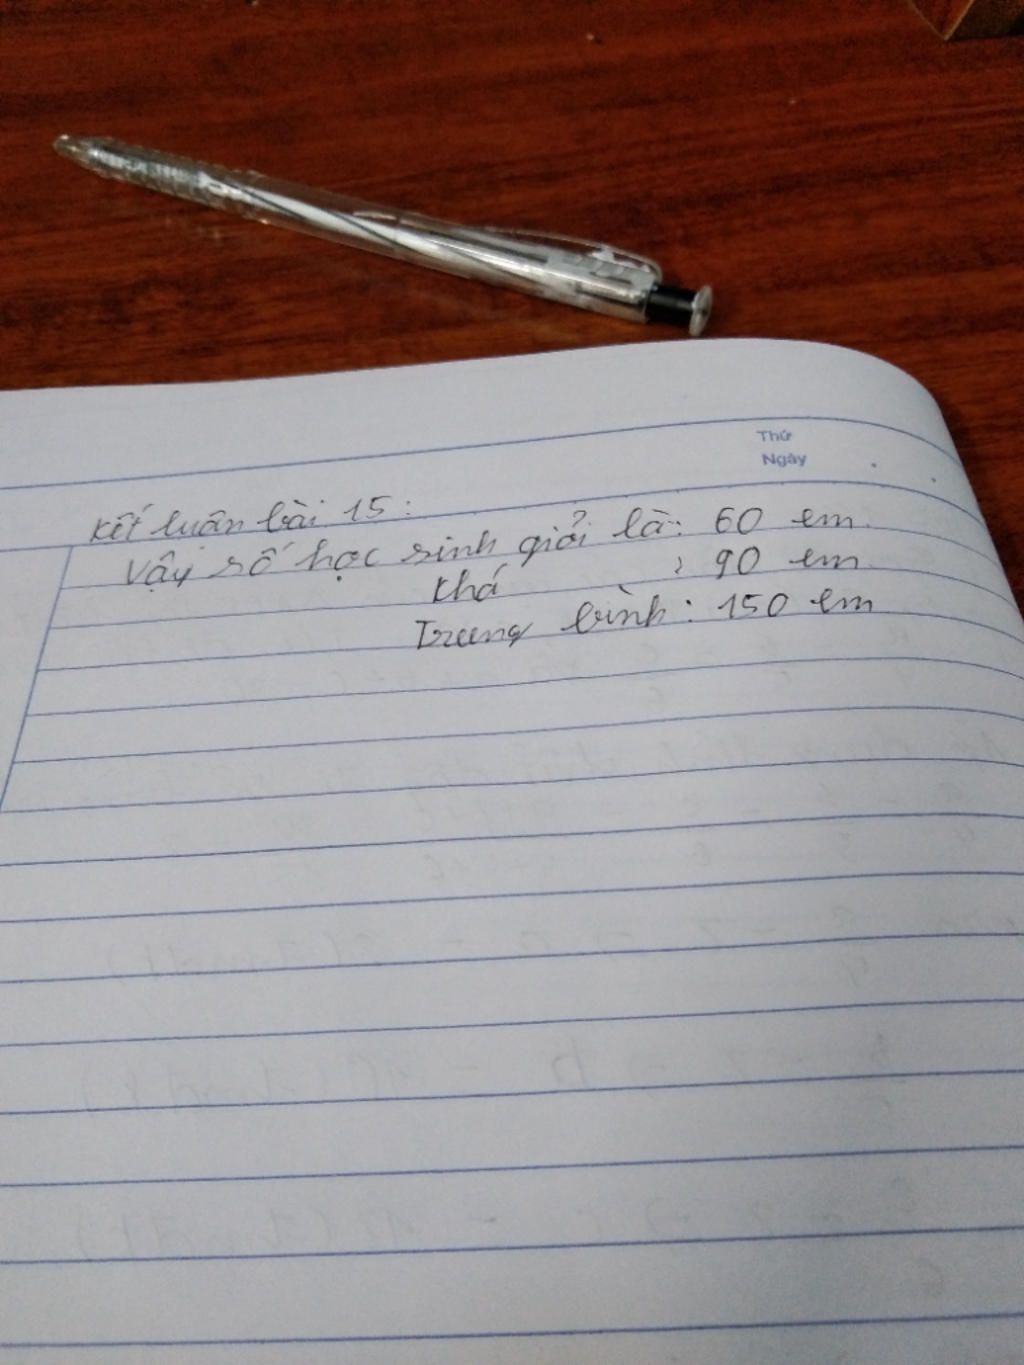 Thứ
Ngày
Kết luân bài 15:
Vậy số học sinh giỏi là: 60 em.
Khá : 90 em
Trung bình: 150 em